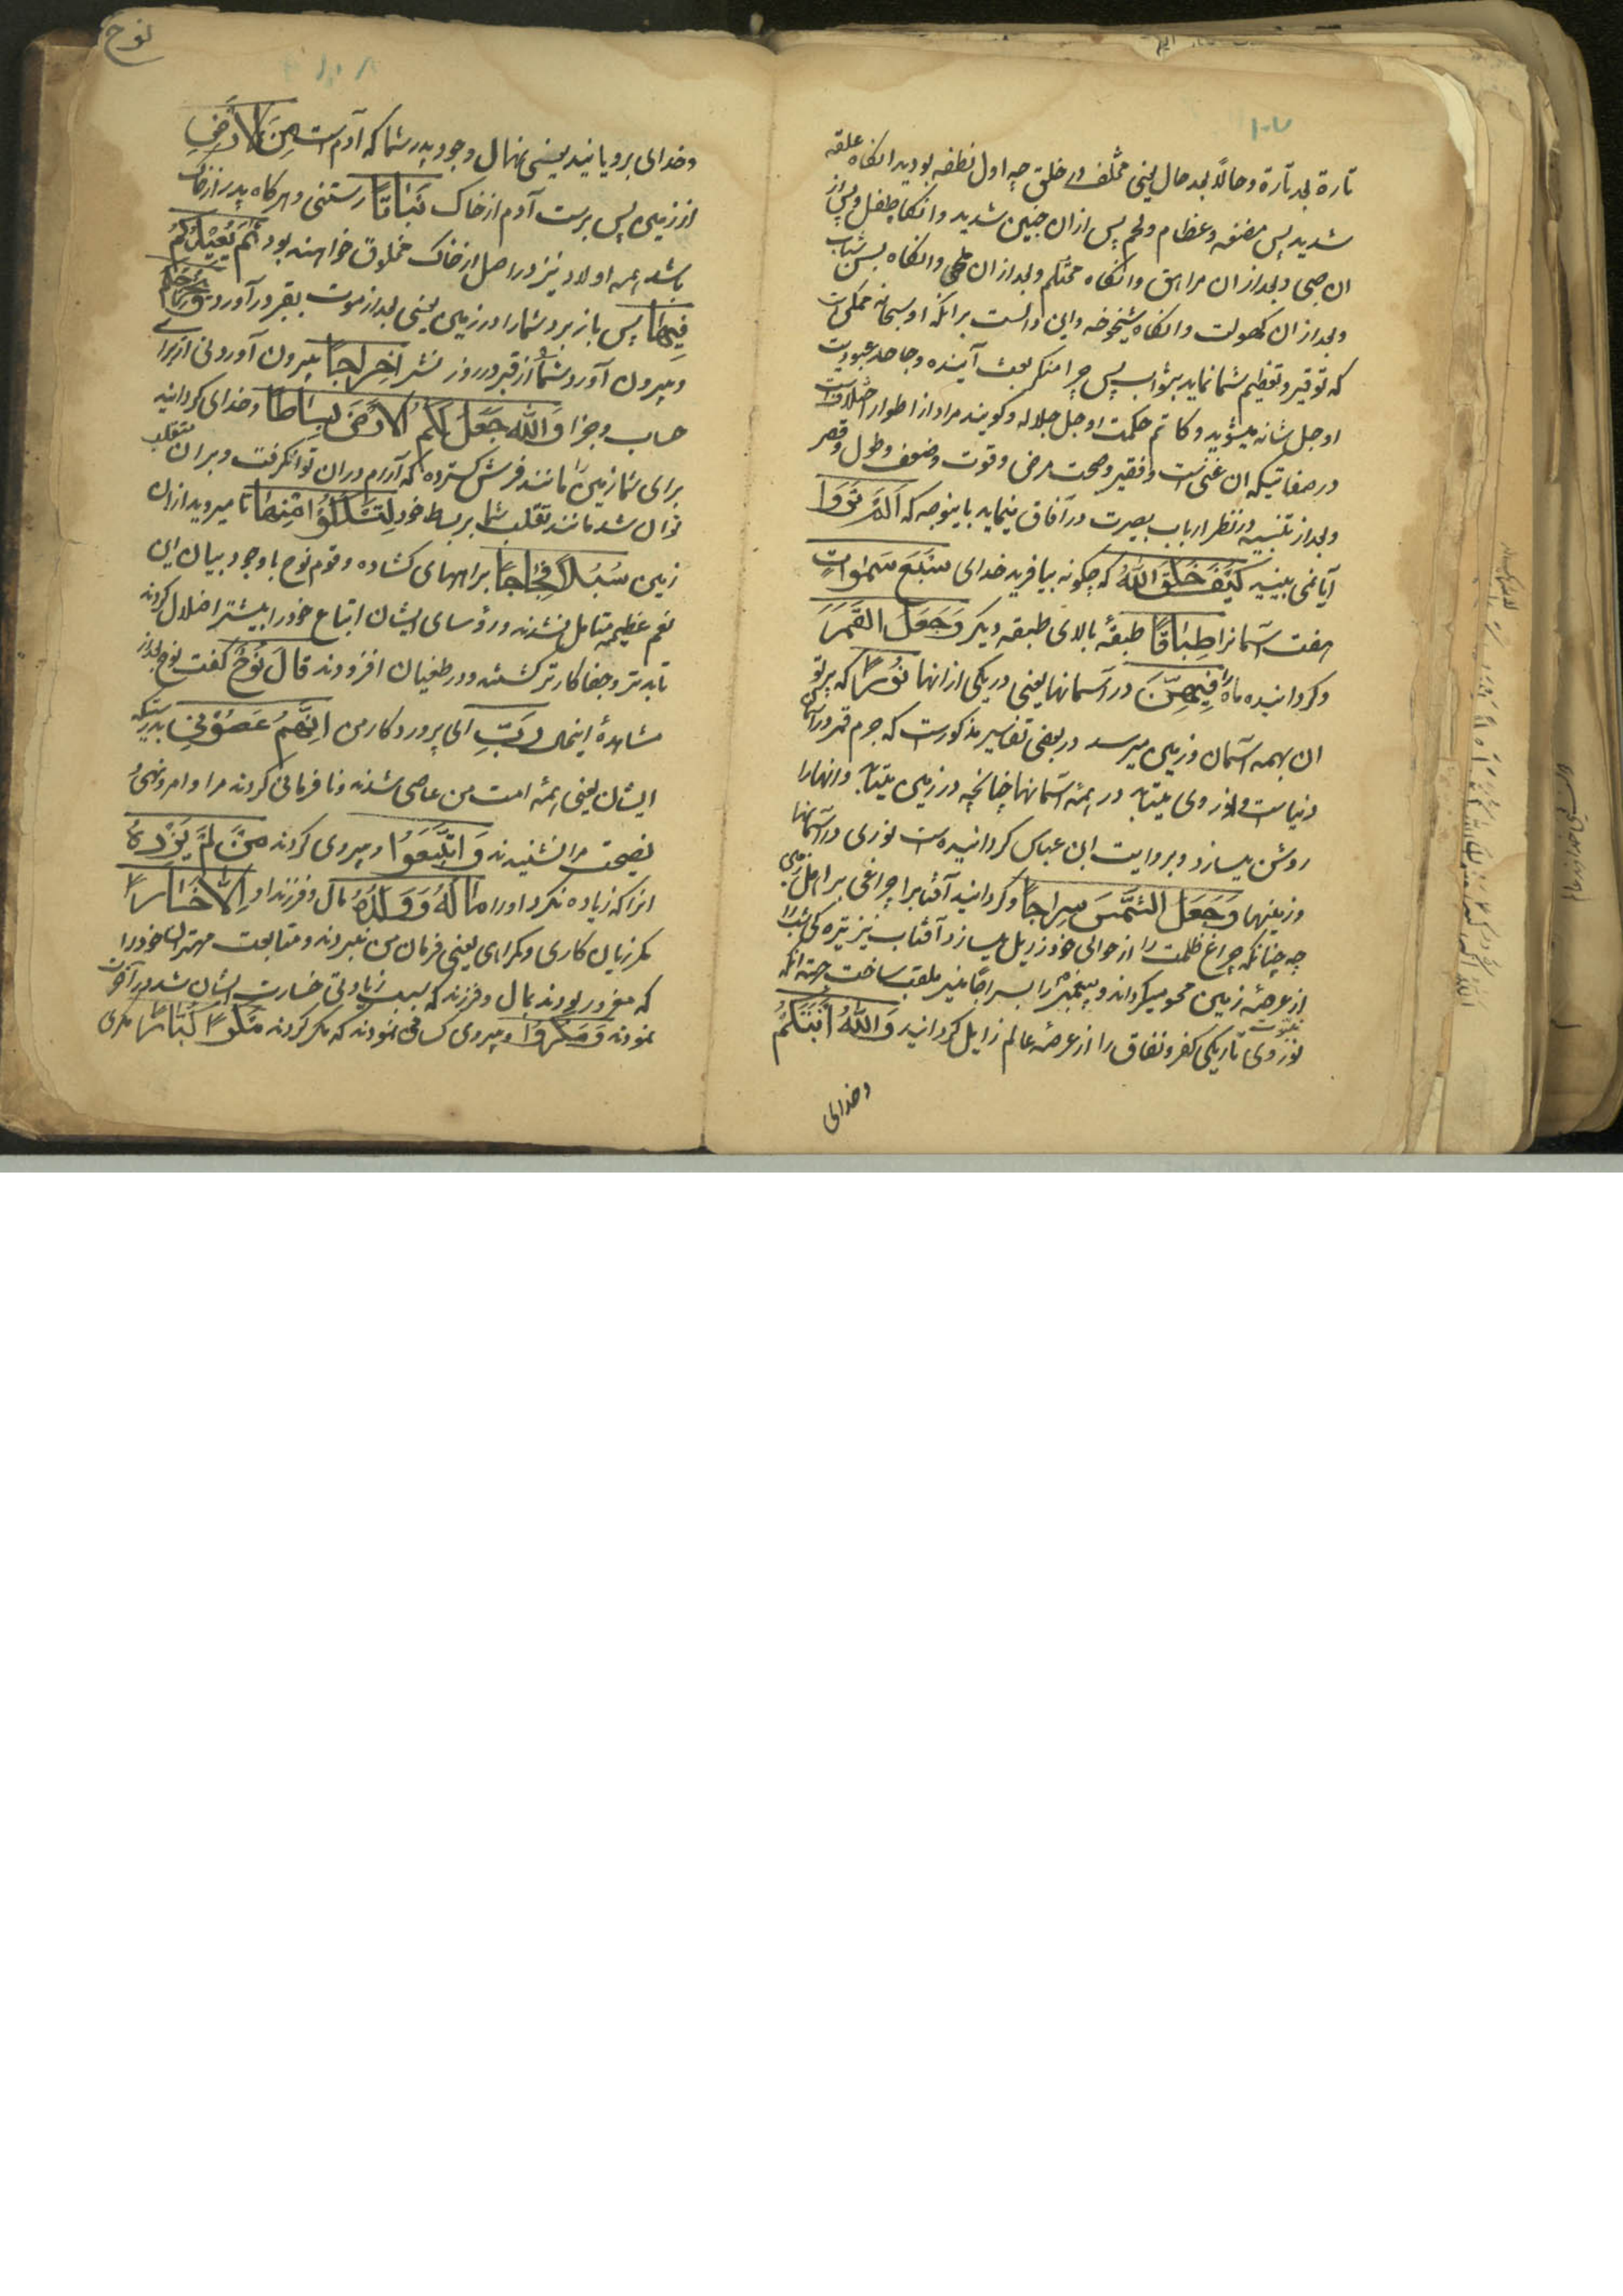 تارة بعد تارة وحالاً بعد حال یعنی مختلف در خلق چه اول نطفه بودید انکاه علقه
شدید پس مضغه وعظام ولحم پس از ان جنین شدید وانکاه طفل وپس از
ان صبی وبعد از ان مراهق وانکاه محتلم وبعد از ان وانکاه پس شباب
وبعد از ان کهولت وانکاه شیخوخه واین دالست برانکه او سبحانه ممکن است
که توقیر وتعظیم شما نماید بثواب پس چرا منکر بعث آینده وجاحد عبودیت
او جل شانه میشوید وکاتم حکمت او جل جلاله وکویند مراد از اطوار اختلافست
در صفاتیکه ان غنی است وفقیر وصحت مرض وقوت وضعف وطول وقصر
وبعد از تنبیه در نظر ارباب بصیرت در آفاق مینماید باینوجه که اَلَمْ تَرَوْا
آیا نمی بینید كَيْفَ خَلَقَ اللّٰهُ که چکونه بیافرید خدای سَبْعَ سَمٰوَاتٍ
هفت آسمانرا طِبَاقًا طبقهٔ بالای طبقه دیکر وَجَعَلَ القَمَرَ
وکردانیده ماه را فِيهِنَّ در آسمانها یعنی در یکی از انها نُورًا که پرتو
ان بهمه آسمان وزمین میرسد در بعضی تفاسیر مذکورست که جرم قمر در آسمان
دنیاست ونور وی میتابد در همهٔ آسمانها چنانچه در زمین میتابد وانهارا
روشن میسازد وبروایت ابن عباس کردانیده است نوری در آسمانها
وزمینها وَجَعَلَ الشَّمْسَ سِرَاجًا وکردانید آفتابرا چراغی براهل زمین
چه چنانکه چراغ ظلمت را از حوالی خود زایل میسازد آفتاب نیز تیره کی شبرا
از عرصهٔ زمین محو میکرداند وپیغمبر را بسراجا منیر ملقب ساخت جهت انکه
نور نبوت وی تاریکی کفر ونفاق را از عرصهٔ عالم زایل کردانید وَاللّٰهُ اَنْبَتَكُمْ
وخدای
نوح
وخدای برویانید یعنی نهال وجود پدر شما که آدم است مِنَ الْاَرْضِ
از زمین پس برست آدم از خاک نَبَاتًا رستنی وهرکاه پدر از خاک
باشد همه اولاد نیز در اصل از خاک مخلوق خواهند بود ثُمَّ يُعِيدُكُمْ
فِيهَا پس باز برد شمارا در زمین یعنی بعد از موت بقبر درآورد وَيُخْرِجُكُمْ
وبیرون آورد شما از قبر در روز نشر اِخْرَاجًا بیرون آوردنی از برای
حساب وجزا وَاللّٰهُ جَعَلَ لَكُمُ الْاَرْضَ بِسَاطًا وخدای کردانید
برای شما زمین را مانند فرش کسترده که آرام در ان توانکرفت وبران متقلب
توان شد مانند تقلب شما بربسط خود لِتَسْلُكُوْا مِنْهَا تا میروید از ان
زمین سُبُلًا فِجَاجًا براههای کشاده وقوم نوح باوجود بیان این
نعم عظیمه متامل نشدند ورؤسای ایشان اتباع خودرا بیشتر اضلال کردند
تا بدتر وجفاکارتر کشتند ودر طغیان افزودند قَالَ نُوحٌ کفت نوح بعد از
مشاهدهٔ اینحال رَبِّ ای پروردکار من اِنَّهُمْ عَصَوْنِي بدرستیکه
ایشان یعنی همهٔ امت من عاصی شدند ونافرمانی کردند مرا وامر ونهی و
نصیحت مرا نشنیدند وَاتَّبَعُوْا وپیروی کردند مَنْ لَمْ يَزِدْهُ
انرا که زیاده نکرد اورا مَالُهُ وَوَلَدُهُ مال وفرزند او اِلَّا خَسَارًا
مکر زیان کاری وکمراهی یعنی فرمان من نبردند ومتابعت مهتران خودرا
که مغرور بودند بمال وفرزند که بسبب زیادتی خسارت ایشان شد در آخرت
نمودند وَمَكَرُوا وپیروی کسانی نمودند که مکر کردند مَكْرًا كُبَّارًا مکری